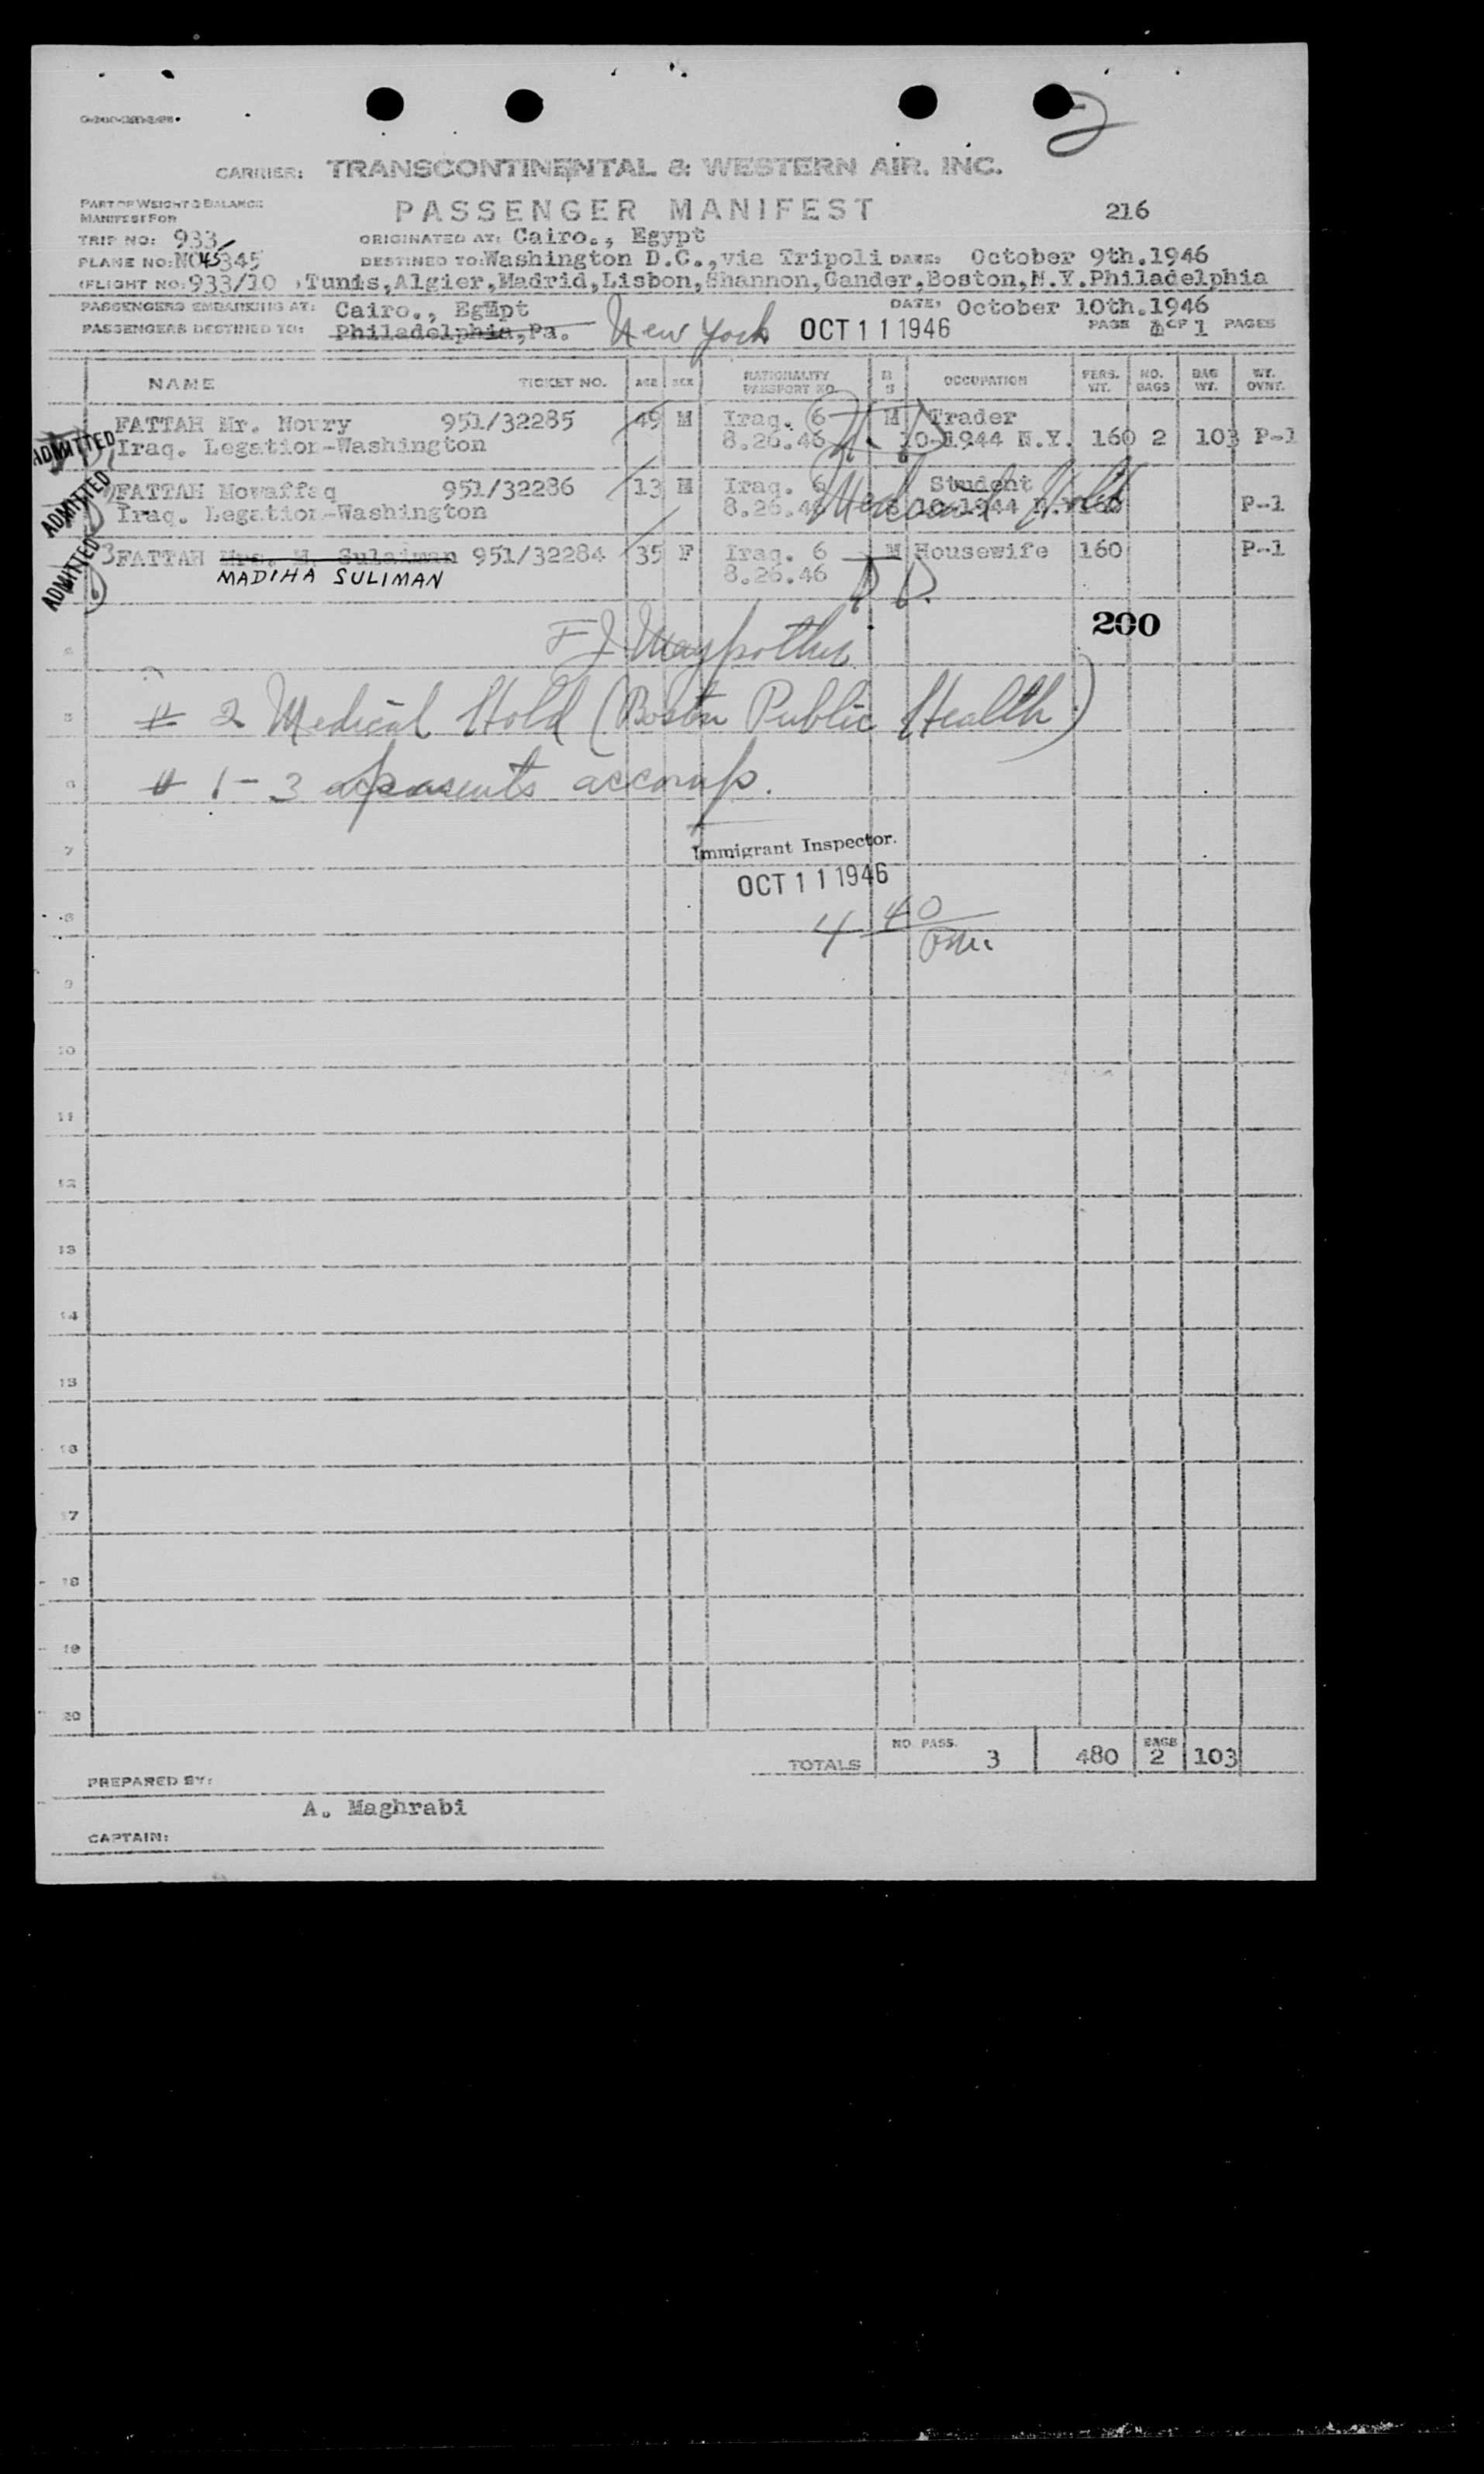 2
CARRIER: TRANSCONTINENTAL & WESTERN AIR. INC.
PART OF WEIGHT & BALANCE
MANIFEST FOR
PASSENGER MANIFEST 216
TRIP NO: 933 ORIGINATED AT: Cairo., Egypt
PLANE NO: NC45345 DESTINED TO: Washington D.C.,via Tripoli DATE: October 9th.1946
(FLIGHT NO: 933/10 ,Tunis,Algier,Madrid,Lisbon,Shannon,Gander,Boston,N.Y.Philadelphia
PASSENGERS EMBARKING AT: Cairo., Egypt DATE: October 10th.1946
PASSENGERS DESTINED TO: Philadelphia,Pa. New York OCT 11 1946 PAGE 1 OF 1 PAGES
NAME TICKET NO. AGE SEX NATIONALITY PASSPORT NO. M S OCCUPATION PERS. WT. NO. BAGS BAG WT. WT. OVNT.
ADMITTED FATTAH Mr. Noury 951/32285 49 M Iraq. 6 M Trader
Iraq. Legation-Washington 8.26.46 10-1944 N.Y. 160 2 103 P-1
ADMITTED FATTAH Mowaffaq 951/32286 13 M Iraq. 6 Student
Iraq. Legation-Washington 8.26.46 Medical Hold 10-1944 N. 160 P-1
ADMITTED 3 FATTAH Mrs. M. Sulaiman 951/32284 35 F Iraq. 6 M Housewife 160 P-1
MADIHA SULIMAN 8.26.46
200
# 2 Medical Hold (Boston Public Health)
# 1 - 3 parents accomp.
7
Immigrant Inspector.
OCT 11 1946
8
4 40 PM
9
10
11
12
13
14
15
16
17
18
19
20
TOTALS NO. PASS. 3 480 BAGS 2 103
PREPARED BY:
A. Maghrabi
CAPTAIN: